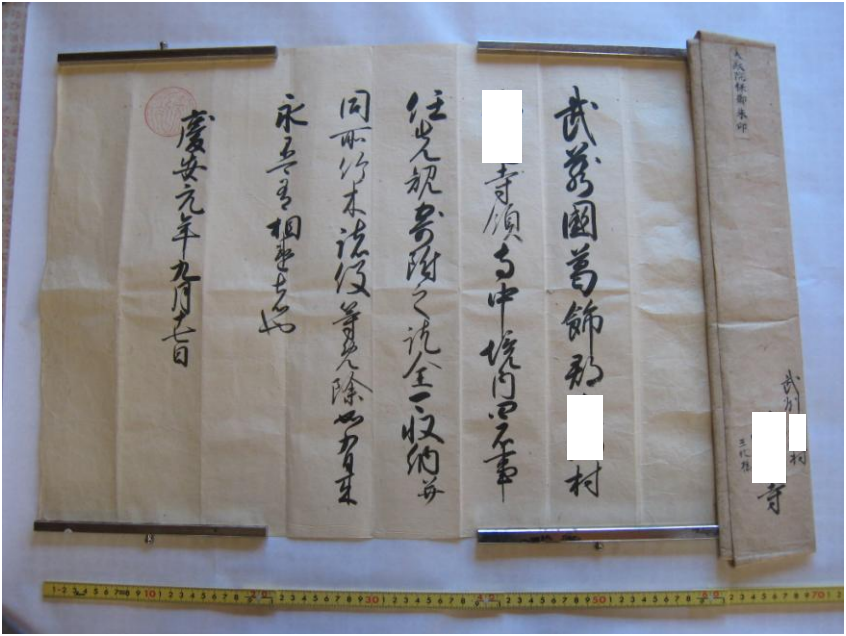 大猷院様御朱印
武州 村
寺
三代様
武蔵國葛飾郡 村
寺領 中境内四石事
任先規寄附之訖全可収納并
同所竹木諸役等免除如有来
永不可有相違者也
慶安元年九月十七日